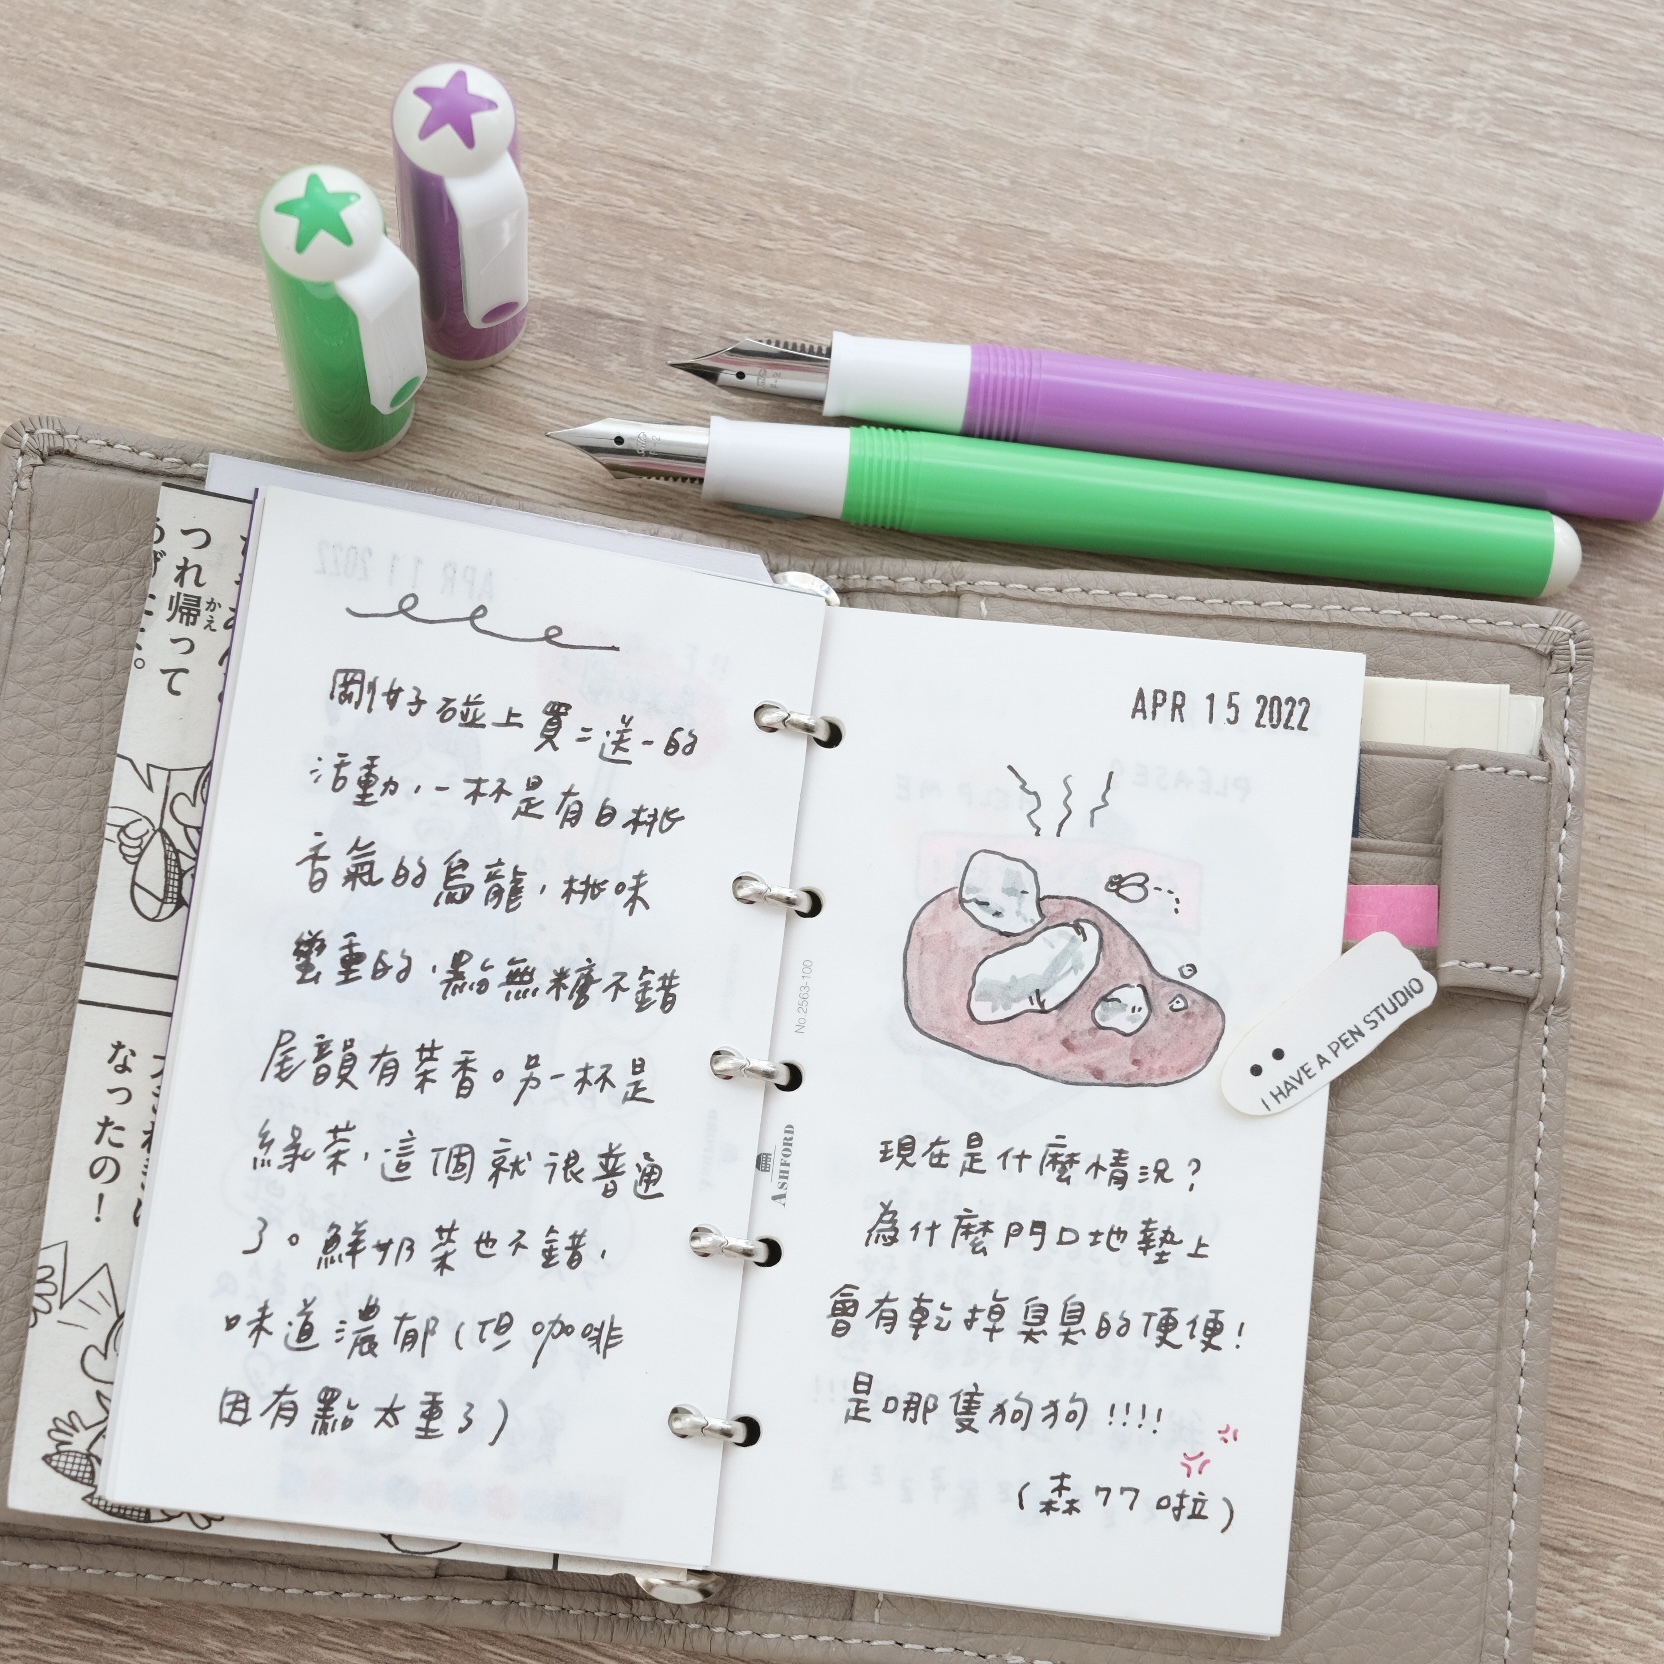 つれ帰って
かえ
なったの!
剛好碰上買二送一的
活動,一杯是有白桃
香氣的烏龍,桃味
蠻重的,點無糖不錯
尾韻有茶香。另一杯是
綠茶,這個就很普通
了。鮮奶茶也不錯,
味道濃郁(但咖啡
因有點太重了)
No.2563-100
ASHFORD
APR 15 2022
現在是什麼情況?
為什麼門口地墊上
會有乾掉臭臭的便便!
是哪隻狗狗!!!!
(森77啦)
I HAVE A PEN STUDIO
APR 11 2022
PLEASE
HELP ME